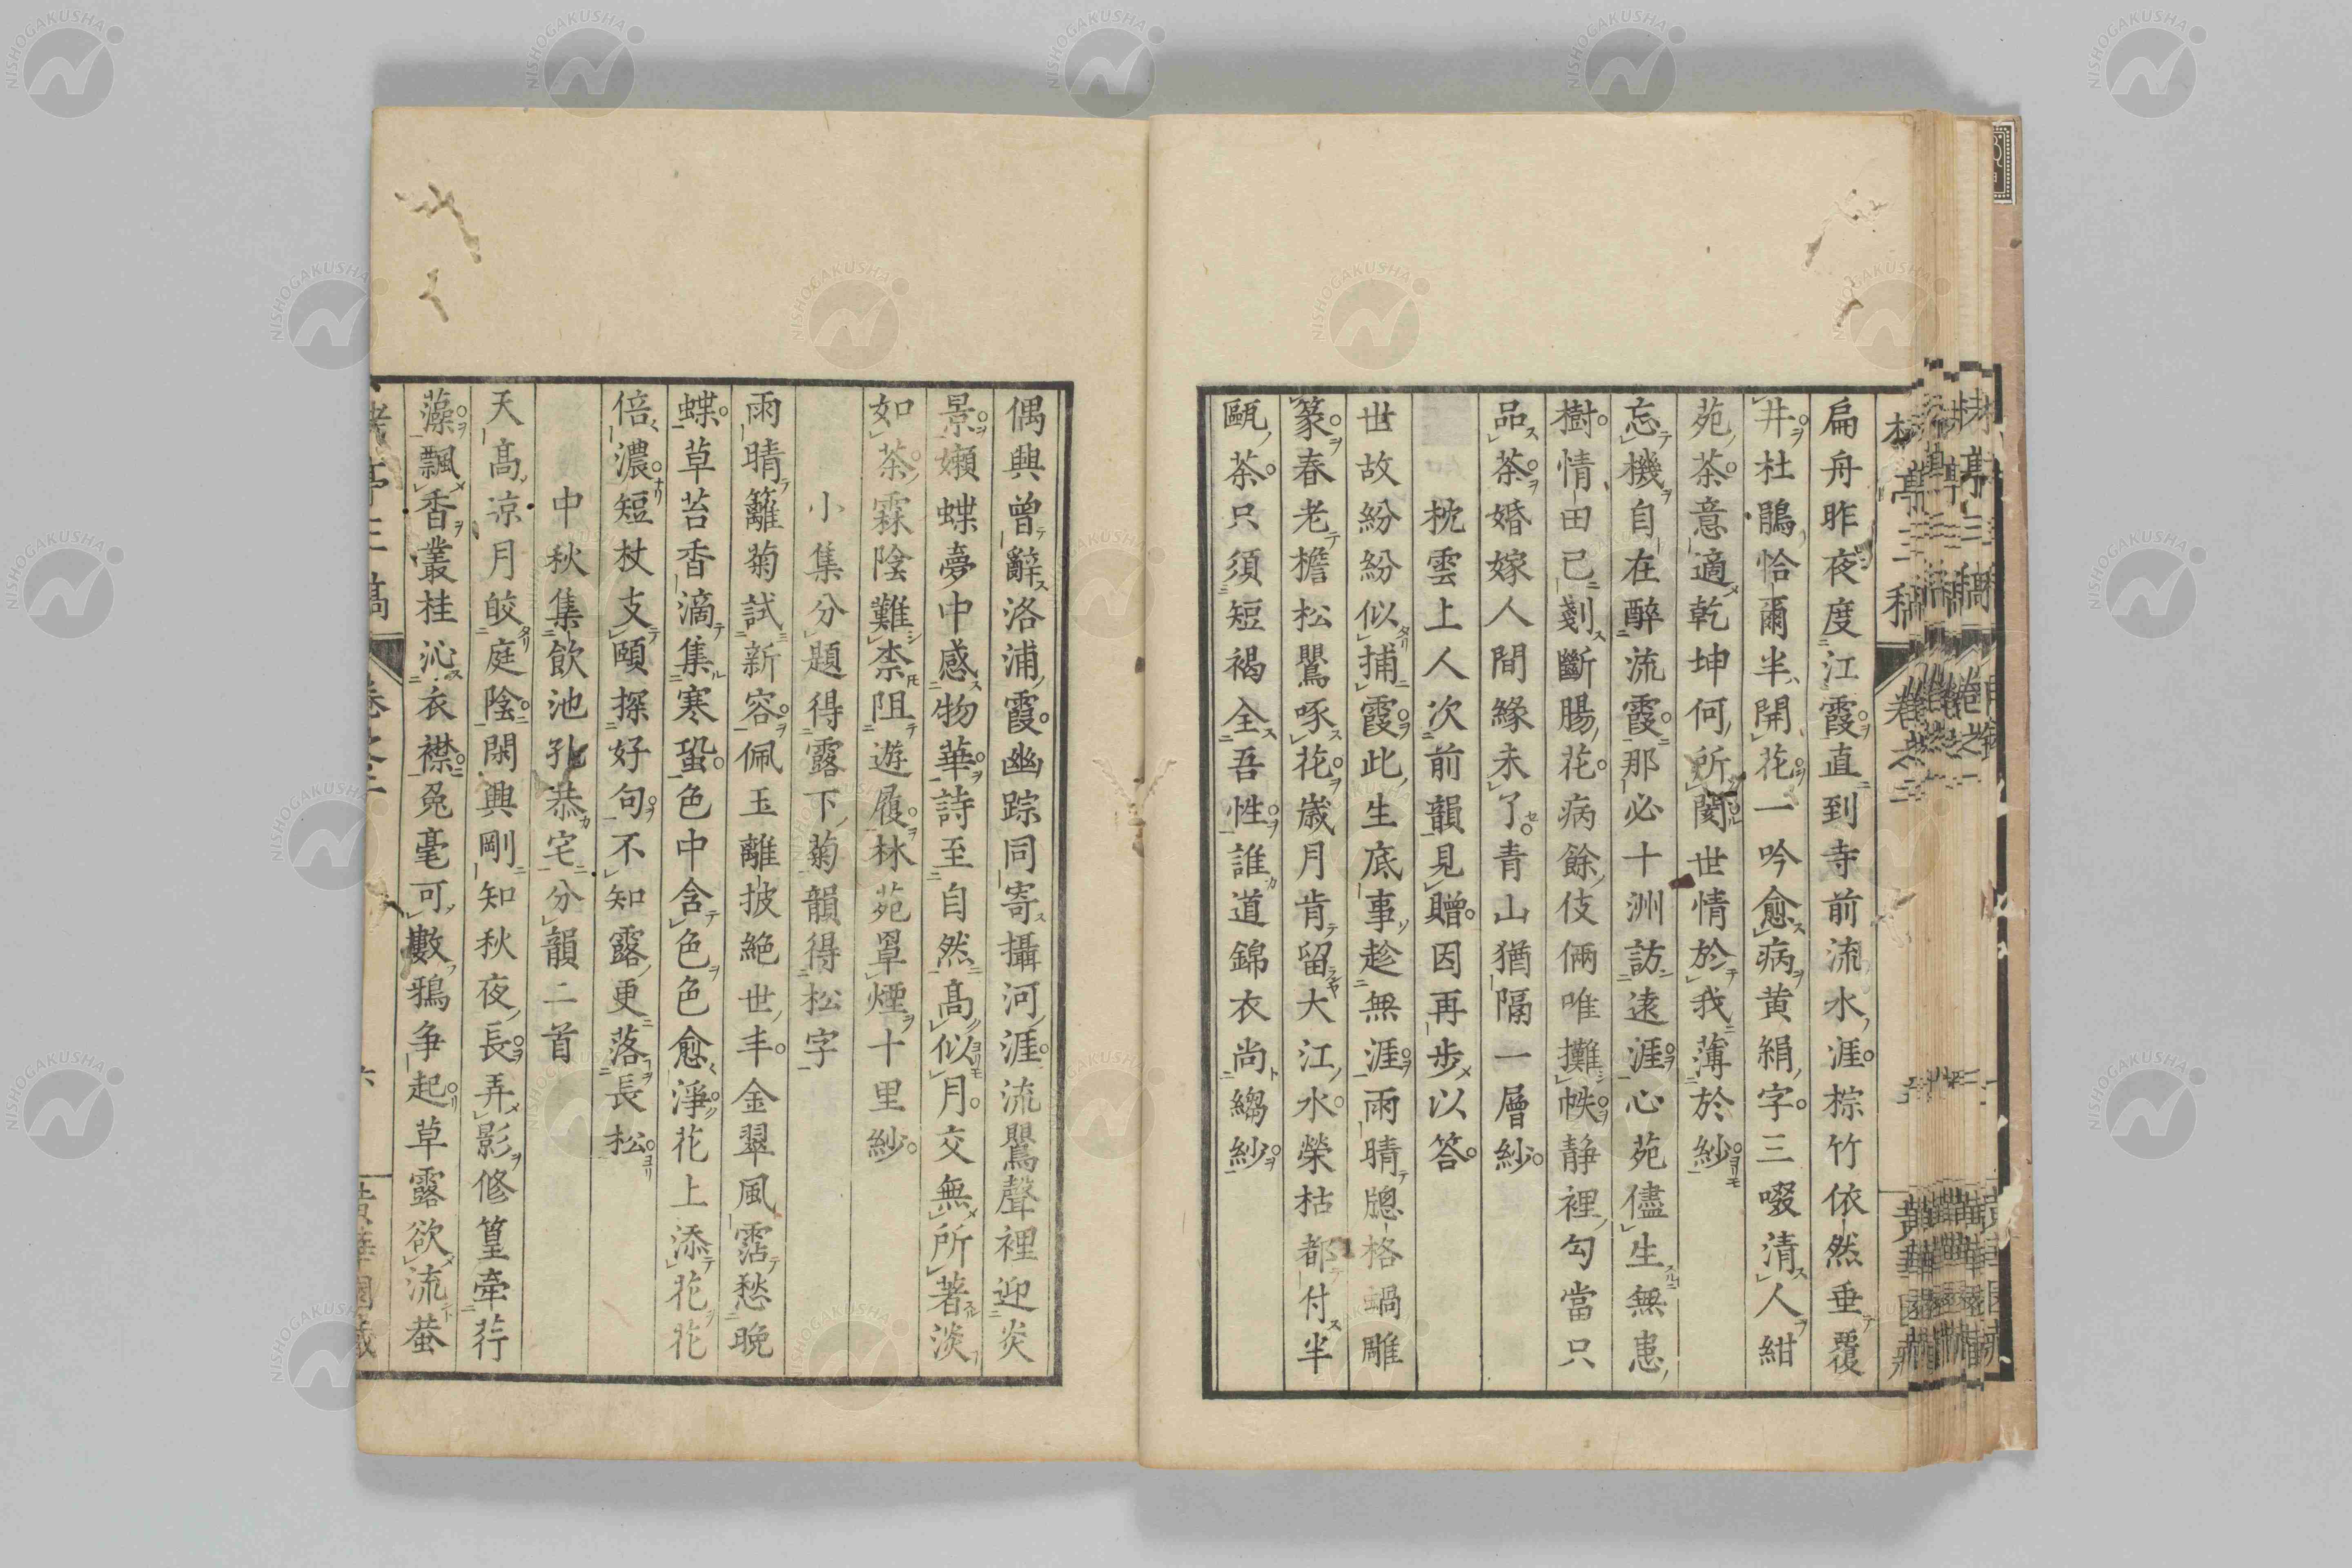 扁舟昨夜度江霞直到寺前流水涯棕竹依然垂覆
井杜鵑恰爾半開花一吟愈病黄絹字三啜清人紺
苑茶意適乾坤何所関世情於我薄於紗
忘機自在醉流霞那必十洲訪遠涯心苑儘生無恚
樹情田已剗斷腸花病餘伎倆唯攤帙静裡勾當只
品茶婚嫁人間緣未了青山猶隔一層紗
枕雲上人次前韻見贈因再歩以答
世故紛紛似捕霞此生底事趁無涯雨晴牕格蝸雕
篆春老檐松鸎啄花歲月肯留大江水榮枯都付半
甌茶只須短褐全吾性誰道錦衣尚縐紗
偶興曾辭洛浦霞幽踪同寄攝河涯流鸎聲裡迎炎
景嬾蝶夢中感物華詩至自然高似月交無所著淡
如茶霖陰難柰阻遊履林苑罩煙十里紗
小集分題得露下菊韻得松字
雨晴籬菊試新容佩玉離披絶世丰金翠風霑愁晩
蝶草苔香滴集寒蛩色中含色色愈淨花上添花花
倍濃短杖支頤探好句不知露更落長松
中秋集飲池孔恭宅分韻二首
天高凉月皎庭陰閑興剛知秋夜長弄影修篁牽荇
藻飄香叢桂沁衣襟兔毫可數鴉争起草露欲流蛬